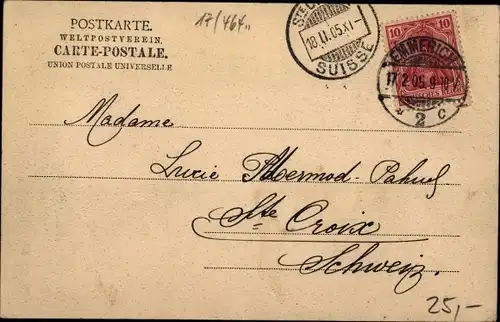 POSTKARTE.
WELTPOSTVEREIN.
CARTE-POSTALE.
UNION POSTALE UNIVERSELLE
17/464.
18.II.05.XI-
SUISSE
10 10
EMMERICH
17.2.05.9-10
* 2 c
Madame
Lucie Mermod-Pahud
Ste Croix
Schweiz.
25,-